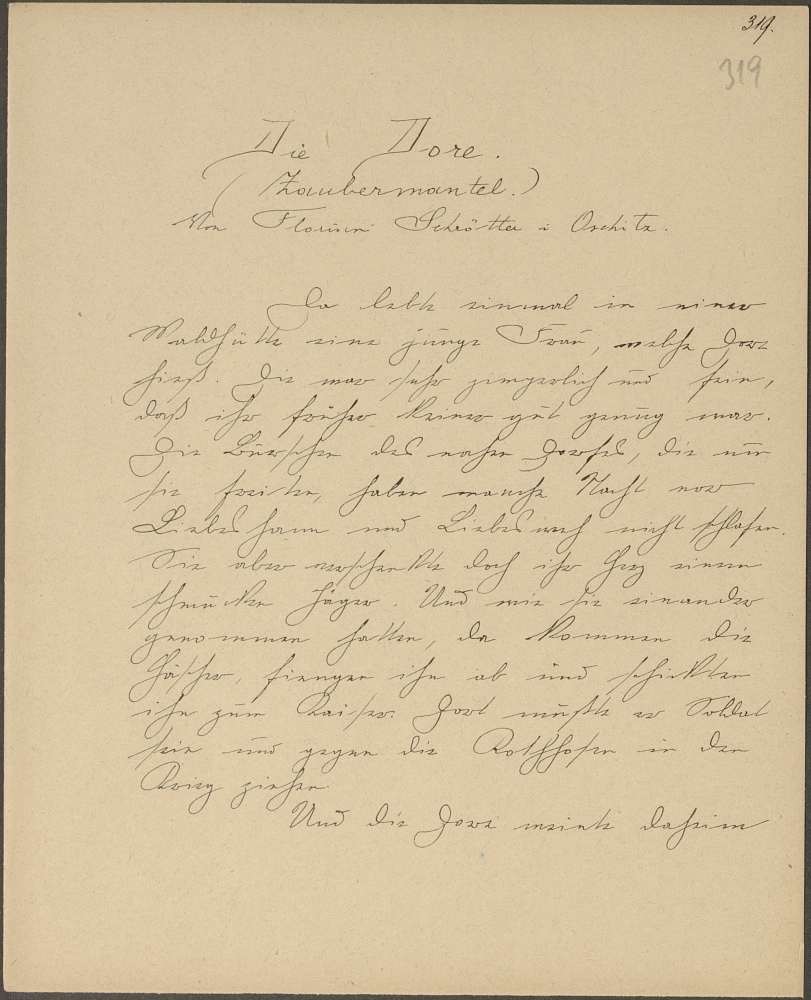 319.
319
Die Dore.
(Zaubermantel.)
Von Florian Schrötter i Oschitz.
Da lebte einmal in einer
Waldhütte eine junge Frau, welche Dore
hieß. Die war sehr zimperlich und fein,
daß ihr früher keiner gut genug war.
Die Burschen des nahen Dorfes, die um
sie freiten, haben manche Nacht vor
Liebesharm und Liebesweh nicht schlafen.
Sie aber verschenkte doch ihr Herz einem
schmucken Jäger. Und wie sie einander
genommen hatten, da kommen die
Häscher, fiengen ihn ab und schickten
ihn zum Kaiser. Dort mußte er Soldat
sein und gegen die Rothhosen in den
Krieg ziehen.
Und die Dore weinte daheim